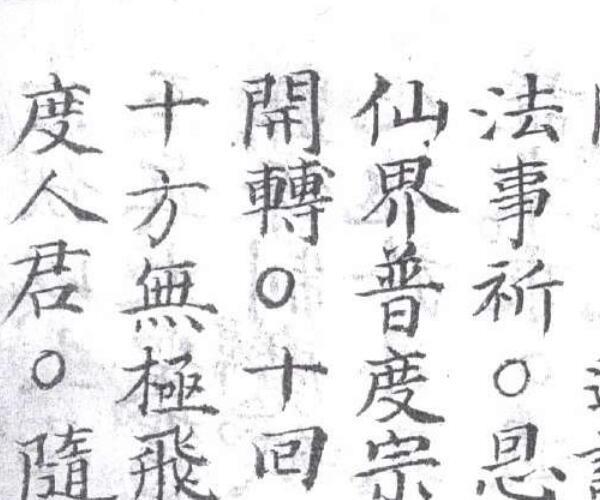 法事祈○恳
仙界普度宗
開轉○十回
十方無極飛
度人君○隨